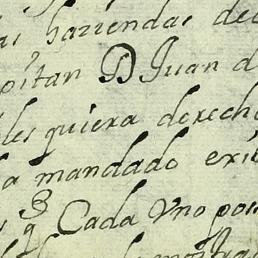 as haziendas de
pitan D Juan d
les quiera derech
a mandado exi
Cada Vno po